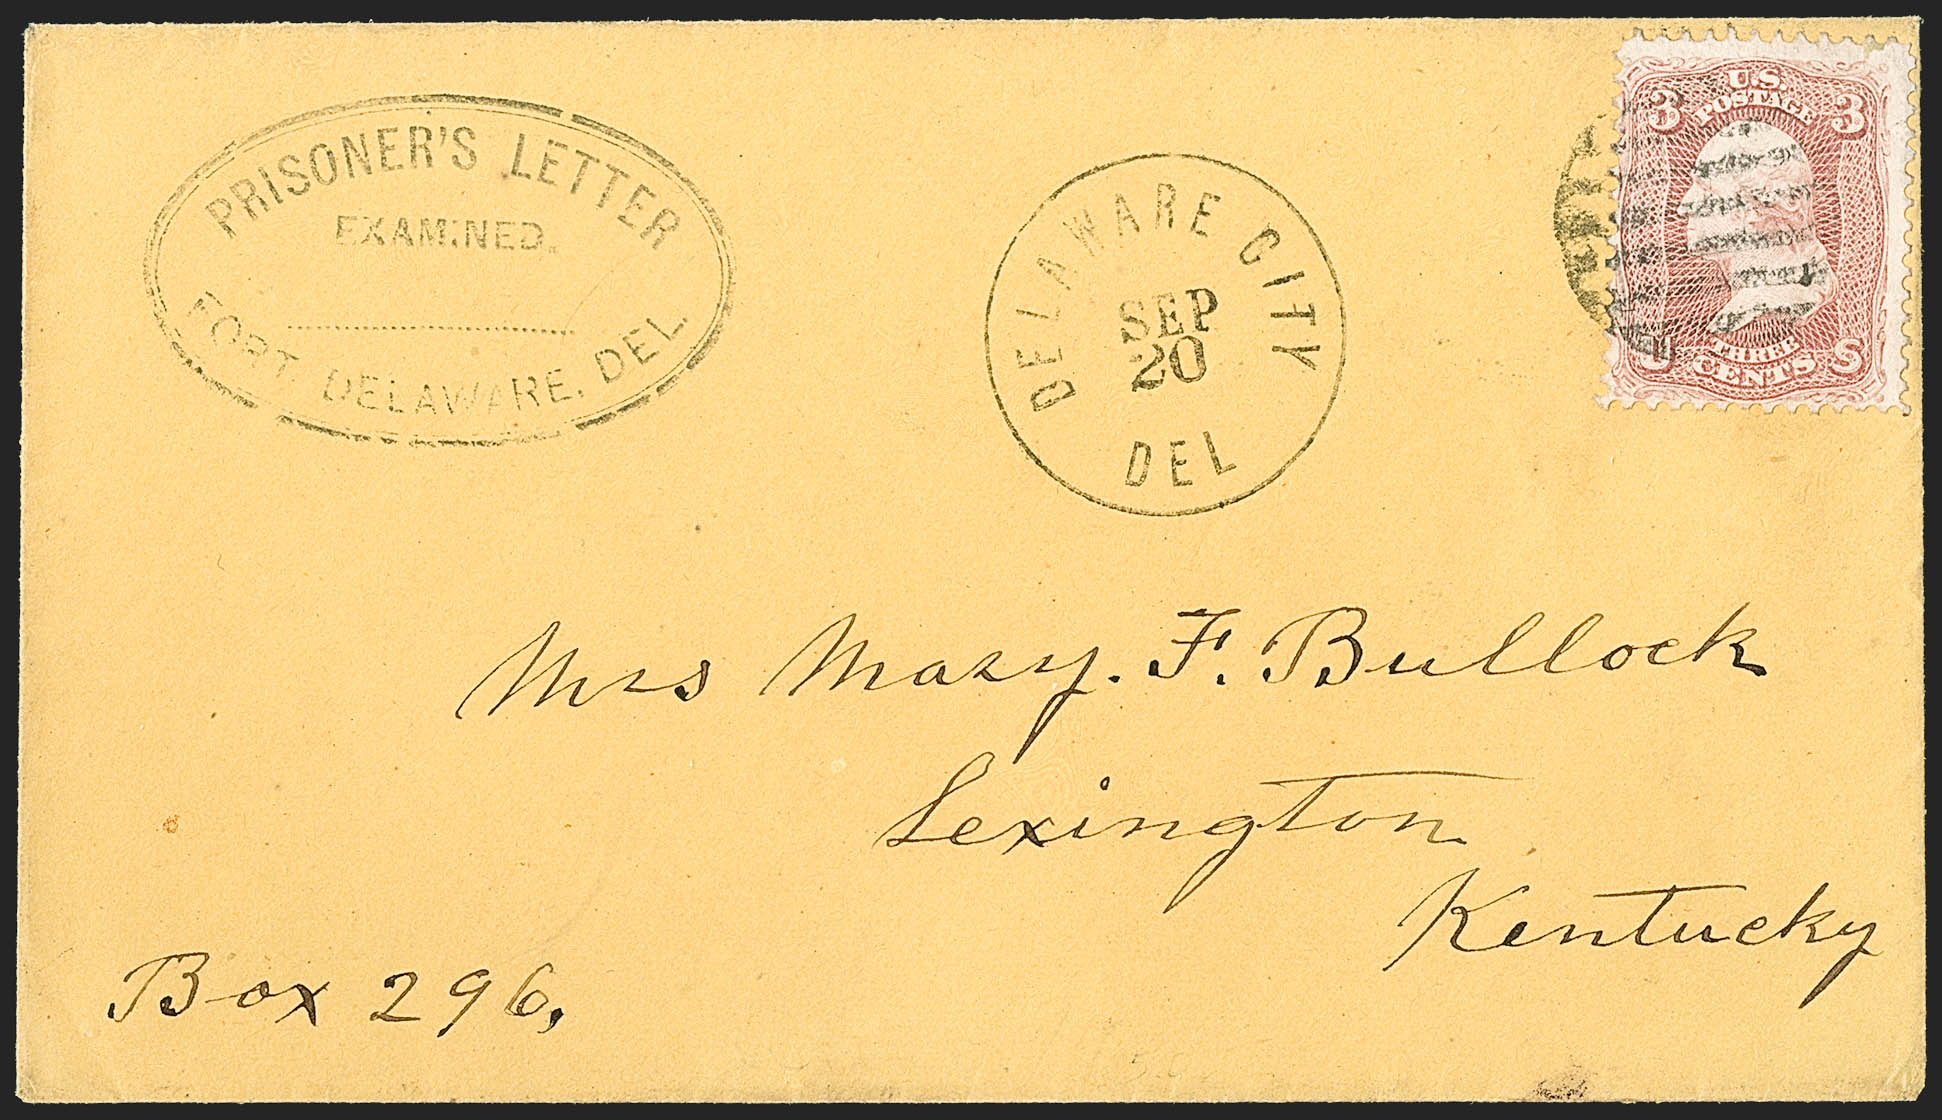 PRISONER'S LETTER
EXAMINED.
FORT DELAWARE, DEL.
DELAWARE CITY
SEP
20
DEL
U.S.
POSTAGE
3 3
THREE
CENTS
U S
Mrs Mary. F. Bullock
Lexington
Kentucky
Box 296,